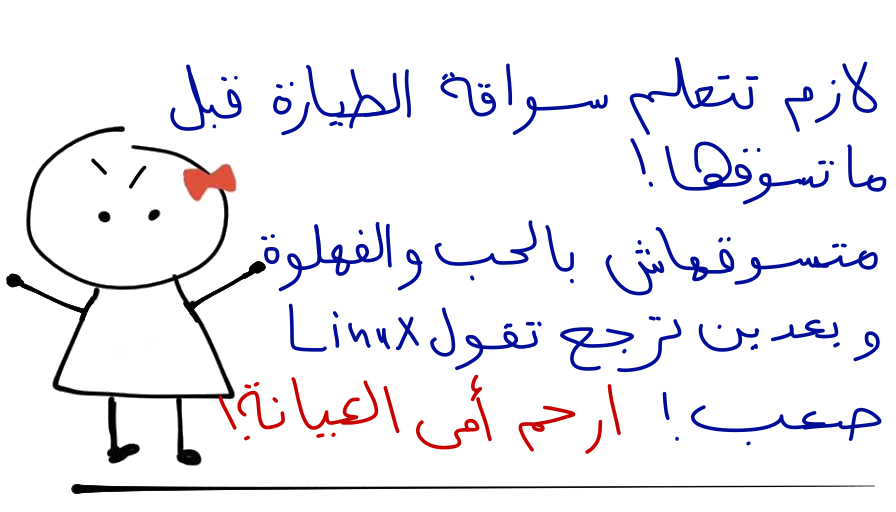 لازم تتعلم سواقة الطيارة قبل
ما تسوقها!
متسوقهاش بالحب والفهلوة
وبعدين ترجع تقول Linux
صعب! ارحم أمى العيانة!